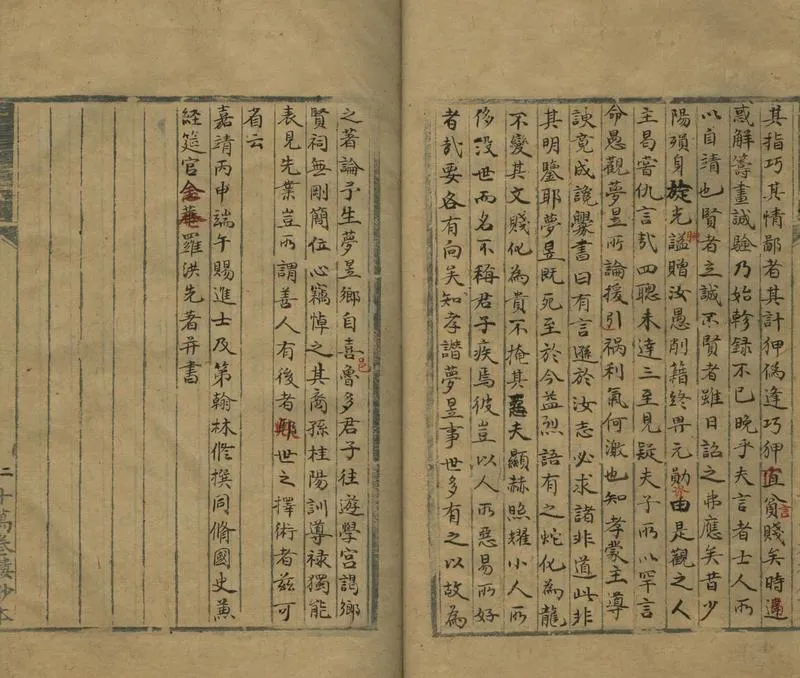 其指巧其情鄙者其計狎偽逢巧狎直貧賤矣時違
惑解籌畫誠驗乃始軫錄不已晚乎夫言者士人所
以自清也賢者立誠不賢者雖日詔之弗應矣昔少
陽殞身旋光謚贈汝愚削籍終畀元勛由是觀之人
主曷嘗仇言哉四聰未達三至見疑夫子所以罕言
命愚觀夢昱所論援引禍利氣何激也知孝蒙主導
諛竟成詭釁書曰有言遜於汝志必求諸非道此非
其明鑒耶夢昱既死至於今益烈語有之蛇化為龍
不變其文賤化為貴不掩其惡夫顯赫照耀小人所
侈沒世而名不稱君子疾焉彼豈以人所惡易所好
者哉要各有向矣知孝諧夢昱事世多有之以故為
之著論予生夢昱鄉自喜魯多君子往遊學宮謁鄉
邑
賢祠無剛簡位心竊悼之其裔孫桂陽訓導祿獨能
表見先業豈所謂善人有後者世之擇術者茲可
省云
嘉靖丙申端午賜進士及第翰林修撰同脩國史兼
經筵官羅洪先著并書
二十萬卷樓抄本